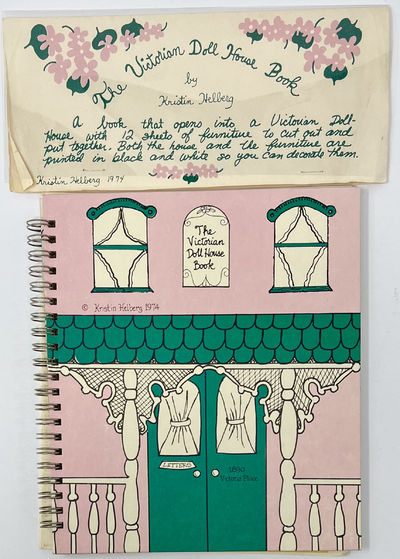 The Victorian Doll House Book
by
Kristin Helberg
A book that opens into a Victorian Doll-
House with 12 sheets of furniture to cut out and
put together. Both the house and the furniture are
printed in black and white so you can decorate them.
Kristin Helberg 1974
The
Victorian
Doll House
Book
© Kristin Helberg 1974
LETTERS
1890
Victoria Place